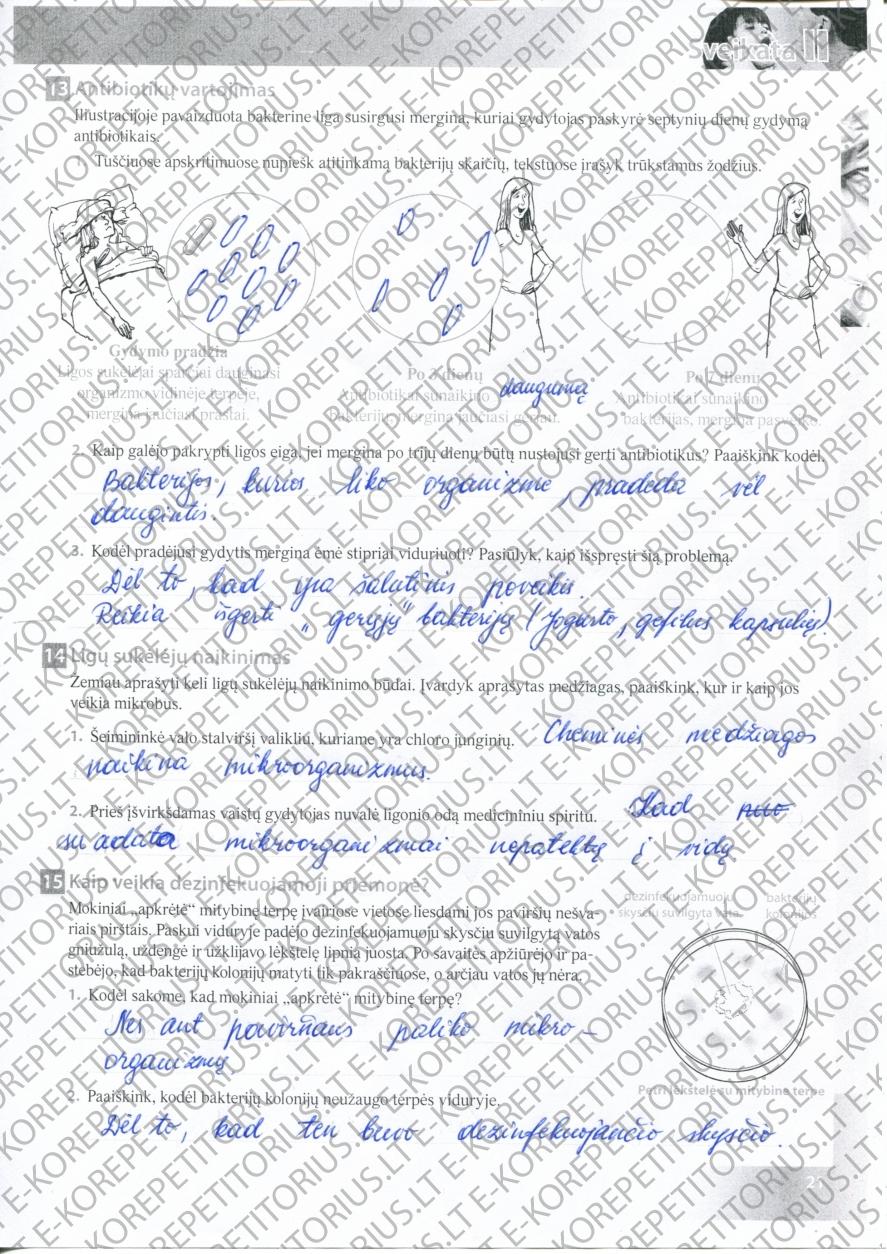 sveikata II
13 Antibiotikų vartojimas
Iliustracijoje pavaizduota bakterine liga susirgusi mergina, kuriai gydytojas paskyrė septynių dienų gydymą
antibiotikais.
1. Tuščiuose apskritimuose nupiešk atitinkamą bakterijų skaičių, tekstuose įrašyk trūkstamus žodžius.
Gydymo pradžia
Ligos sukėlėjai sparčiai dauginasi
organizmo vidinėje terpėje,
mergina jaučiasi prastai.
Po 3 dienų
Antibiotikai sunaikino daugumą
bakterijų, mergina jaučiasi geriau.
Po 7 dienų
Antibiotikai sunaikino
bakterijas, mergina pasveiko.
2. Kaip galėjo pakrypti ligos eiga, jei mergina po trijų dienų būtų nustojusi gerti antibiotikus? Paaiškink kodėl.
Bakterijos, kurios liko organizme, pradeda vėl
daugintis.
3. Kodėl pradėjusi gydytis mergina ėmė stipriai viduriuoti? Pasiūlyk, kaip išspręsti šią problemą.
Dėl to, kad yra šalutinis poveikis.
Reikia išgerti „gerųjų" bakterijų (Jogurto, gefilus kapsulių).
14 Ligų sukėlėjų naikinimas
Žemiau aprašyti keli ligų sukėlėjų naikinimo būdai. Įvardyk aprašytas medžiagas, paaiškink, kur ir kaip jos
veikia mikrobus.
1. Šeimininkė valo stalviršį valikliu, kuriame yra chloro junginių. Cheminės medžiagos
naikina mikroorganizmus.
2. Prieš įšvirkšdamas vaistų gydytojas nuvalė ligonio odą medicininiu spiritu. Kad
su adata mikroorganizmai nepatektų į vidų
15 Kaip veikia dezinfekuojamoji priemonė?
Mokiniai „apkrėtė“ mitybinę terpę įvairiose vietose liesdami jos paviršių nešva-
riais pirštais. Paskui viduryje padėjo dezinfekuojamuoju skysčiu suvilgytą vatos
gniužulą, uždengė ir užklijavo lėkštelę lipnia juosta. Po savaitės apžiūrėjo ir pa-
stebėjo, kad bakterijų kolonijų matyti tik pakraščiuose, o arčiau vatos jų nėra.
dezinfekuojamuoju
skysčiu suvilgyta vata
bakterijų
kolonijos
1. Kodėl sakome, kad mokiniai „apkrėtė“ mitybinę terpę?
Nes ant paviršiaus paliko mikro-
organizmų.
Petri lėkštelė su mitybine terpe
2. Paaiškink, kodėl bakterijų kolonijų neužaugo terpės viduryje.
Dėl to, kad ten buvo dezinfekuojančio skysčio.
E-KOREPETITORIUS.LT